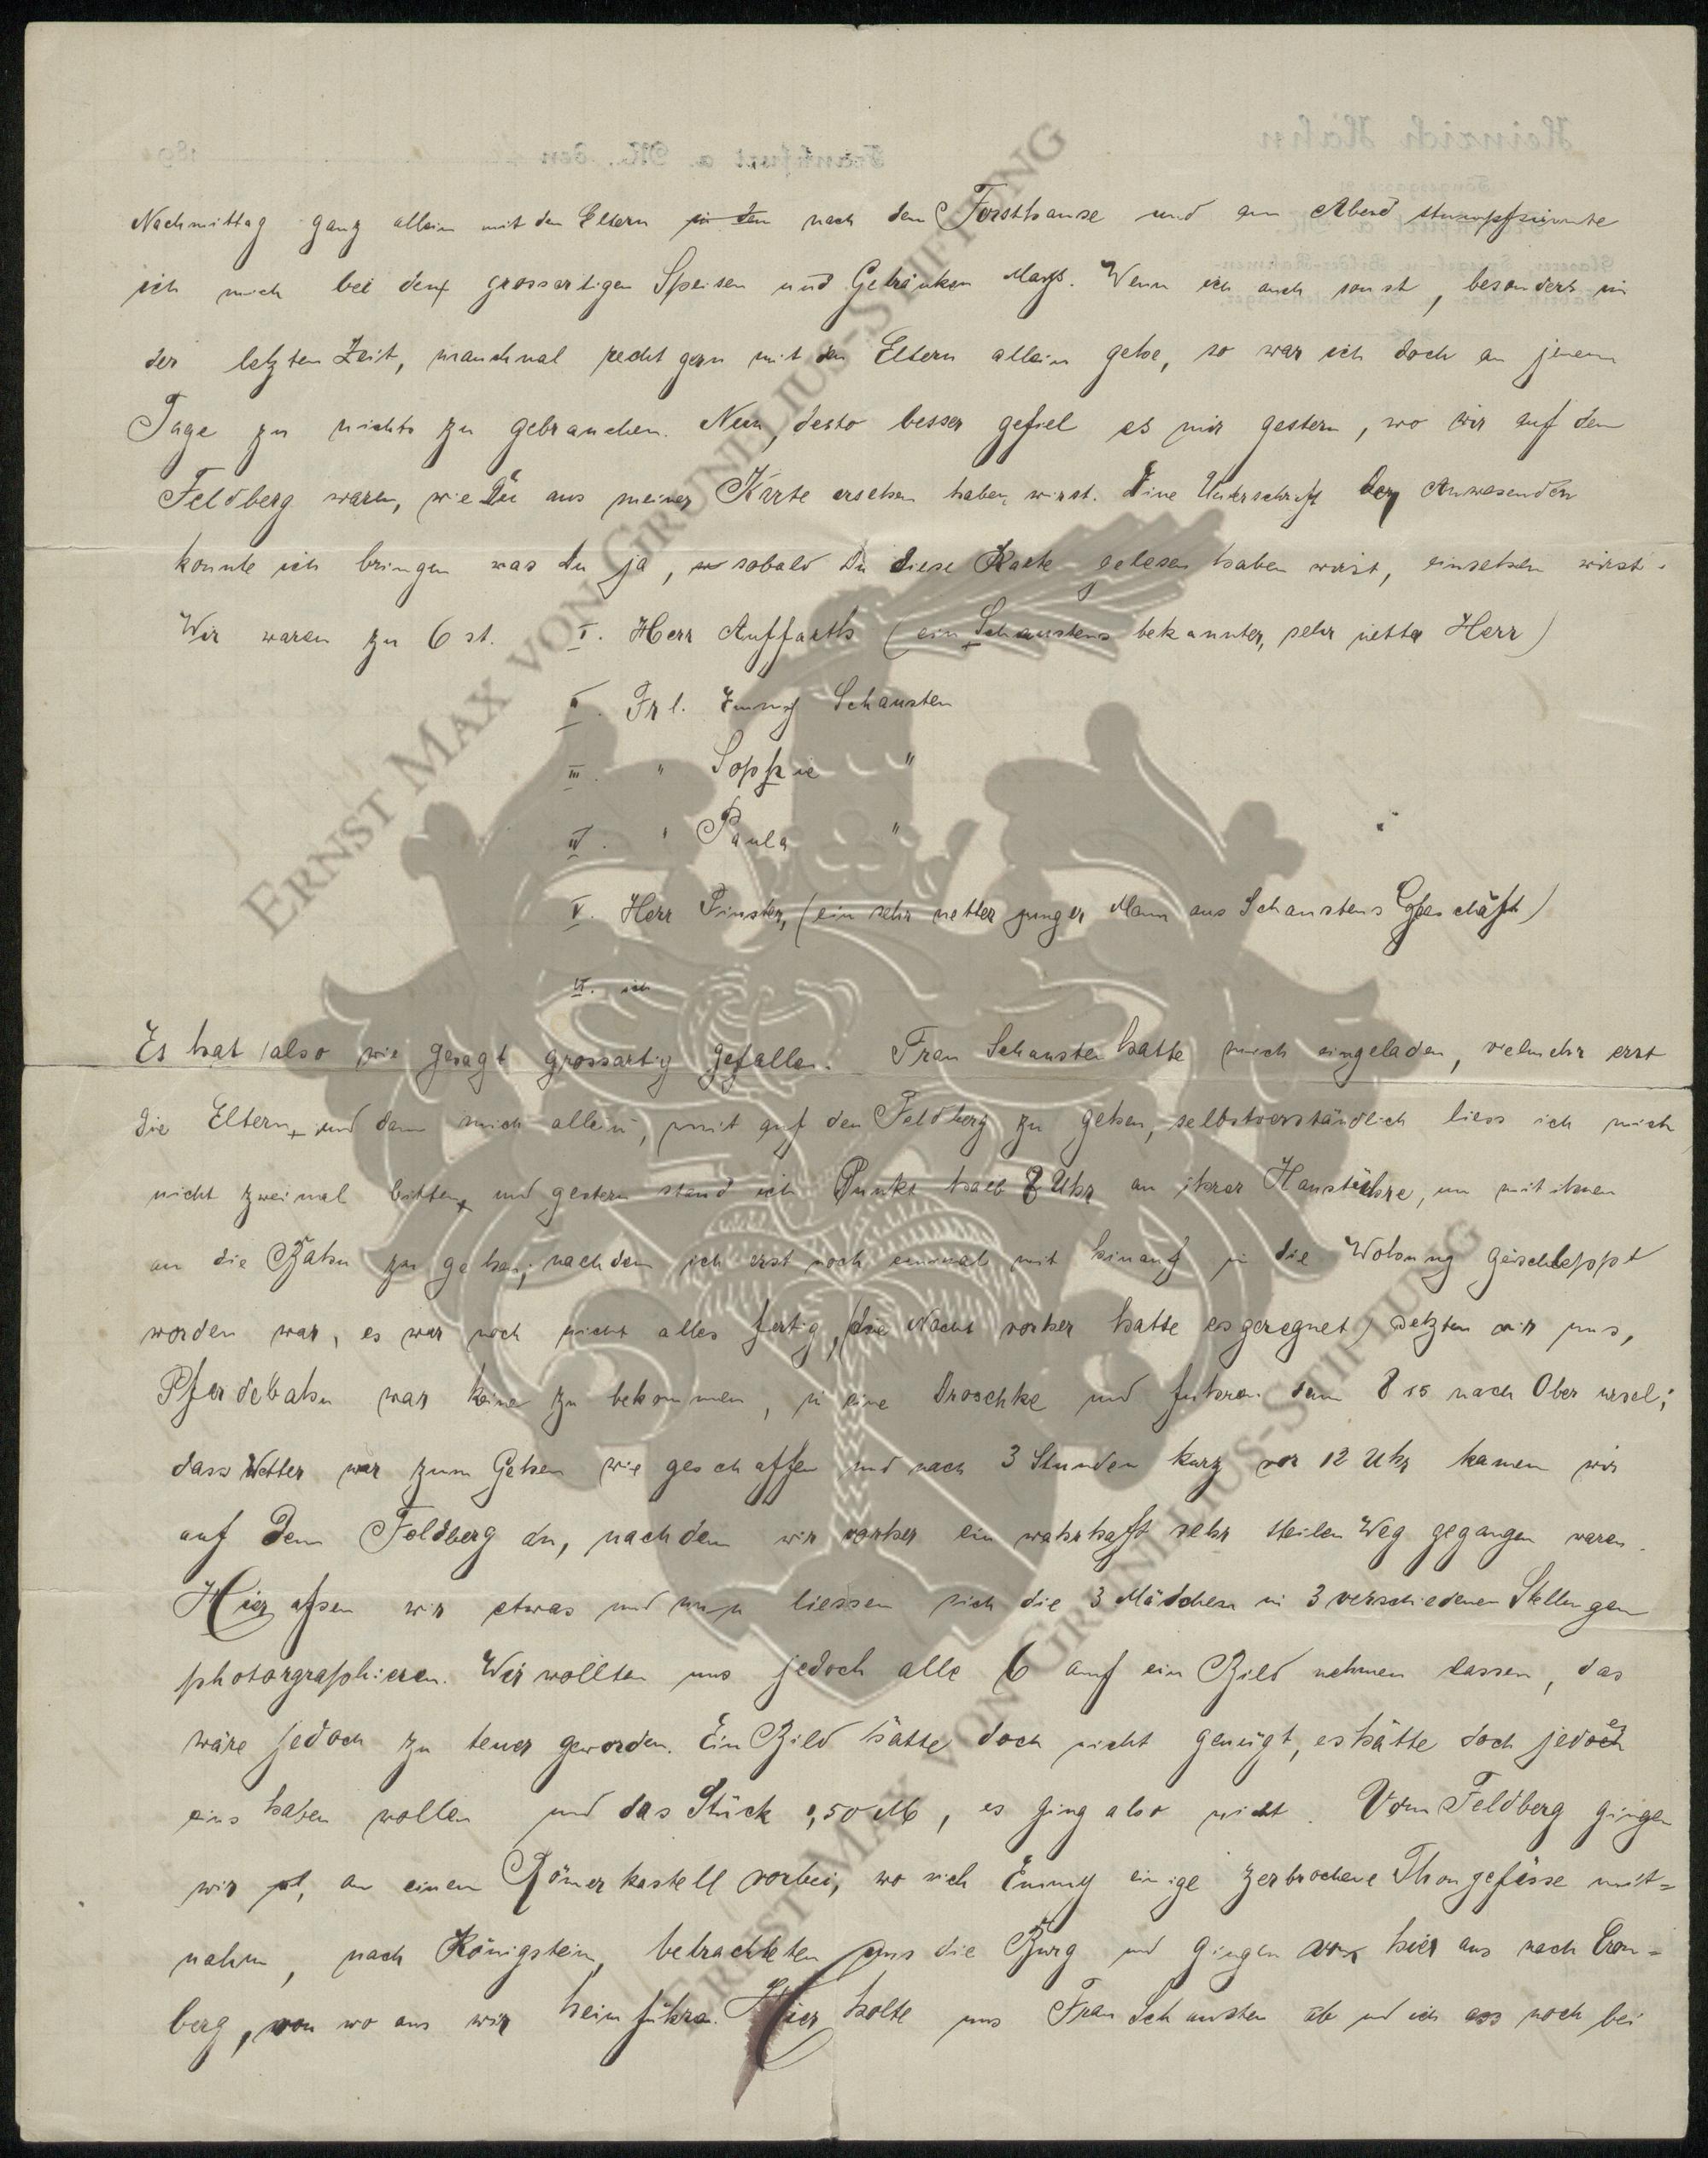 Nachmittag ganz allein mit den Eltern in den nach dem Forsthause und am Abend stumpfsinnte
ich mich bei den grossartigen Speisen und Getränken Mays. Wenn ich auch sonst, besonders in
der letzten Zeit, manchmal recht gern mit den Eltern allein gehe, so war ich doch an jenem
Tage zu nichts zu gebrauchen. Nun, desto besser gefiel es mir gestern, wo wir auf dem
Feldberg waren, wie Du aus meiner Karte ersehen haben wirst. Eine Unterschrift der Anwesenden
konnte ich bringen was du ja, sobald Du diese Karte gelesen haben wirst, einsehen wirst.
Wir waren zu 6 st. I. Herr Auffarth (ein Schaustens bekannter, sehr netter Herr)
II. Frl. Emmy Schausten
III. " Sophie "
IV. " Paula "
V. Herr Pinster, (ein sehr netter junger Mann aus Schaustens Geschäft)
VI. ich
Es hat also wie gesagt grossartig gefallen. Frau Schausten hatte mich eingeladen, vielmehr erst
die Eltern, und dann mich allein, mit auf den Feldberg zu gehen, selbstverständlich liess ich mich
nicht zweimal bitten, und gestern stand ich Punkt halb 8 Uhr an ihrer Hausthüre, um mit ihnen
an die Bahn zu gehen; nachdem ich erst noch einmal mit hinauf in die Wohnung geschleppt
worden war, es war noch nicht alles fertig, (die Nacht vorher hatte es geregnet) setzten wir uns,
Pferdebahn war keine zu bekommen, in eine Droschke und fuhren dann 8 55 nach Ober ursel;
dass Wetter war zum Gehen wie geschaffen und nach 3 Stunden kurz vor 12 Uhr kamen wir
auf dem Feldberg an, nachdem wir vorher ein wahrhaft sehr steilen Weg gegangen waren.
Hier assen wir etwas und nun liessen sich die 3 Mädchen in 3 verschiedenen Stellungen
photorgraphieren. Wir wollten uns jedoch alle 6 auf ein Bild nehmen lassen, das
wäre jedoch zu teuer geworden. Ein Bild hätte doch nicht genügt, es hätte doch jedes
eins haben wollen und das Stück ,50 M, es ging also nicht. Vom Feldberg gingen
wir, an einem Römerkastell vorbei, wo sich Emmy einige zerbrochene Thongefässe mit=
nahm, nach Königstein, betrachteten uns die Burg und gingen von hier aus nach Cron=
berg, von wo aus wir heim fuhren. Hier holte uns Frau Schausten ab und ich ass noch bei
ERNST MAX VON GRUNELIUS-STIFTUNG
ERNST MAX VON GRUNELIUS-STIFTUNG
Heinrich Hahn
Frankfurt a. M., den
189